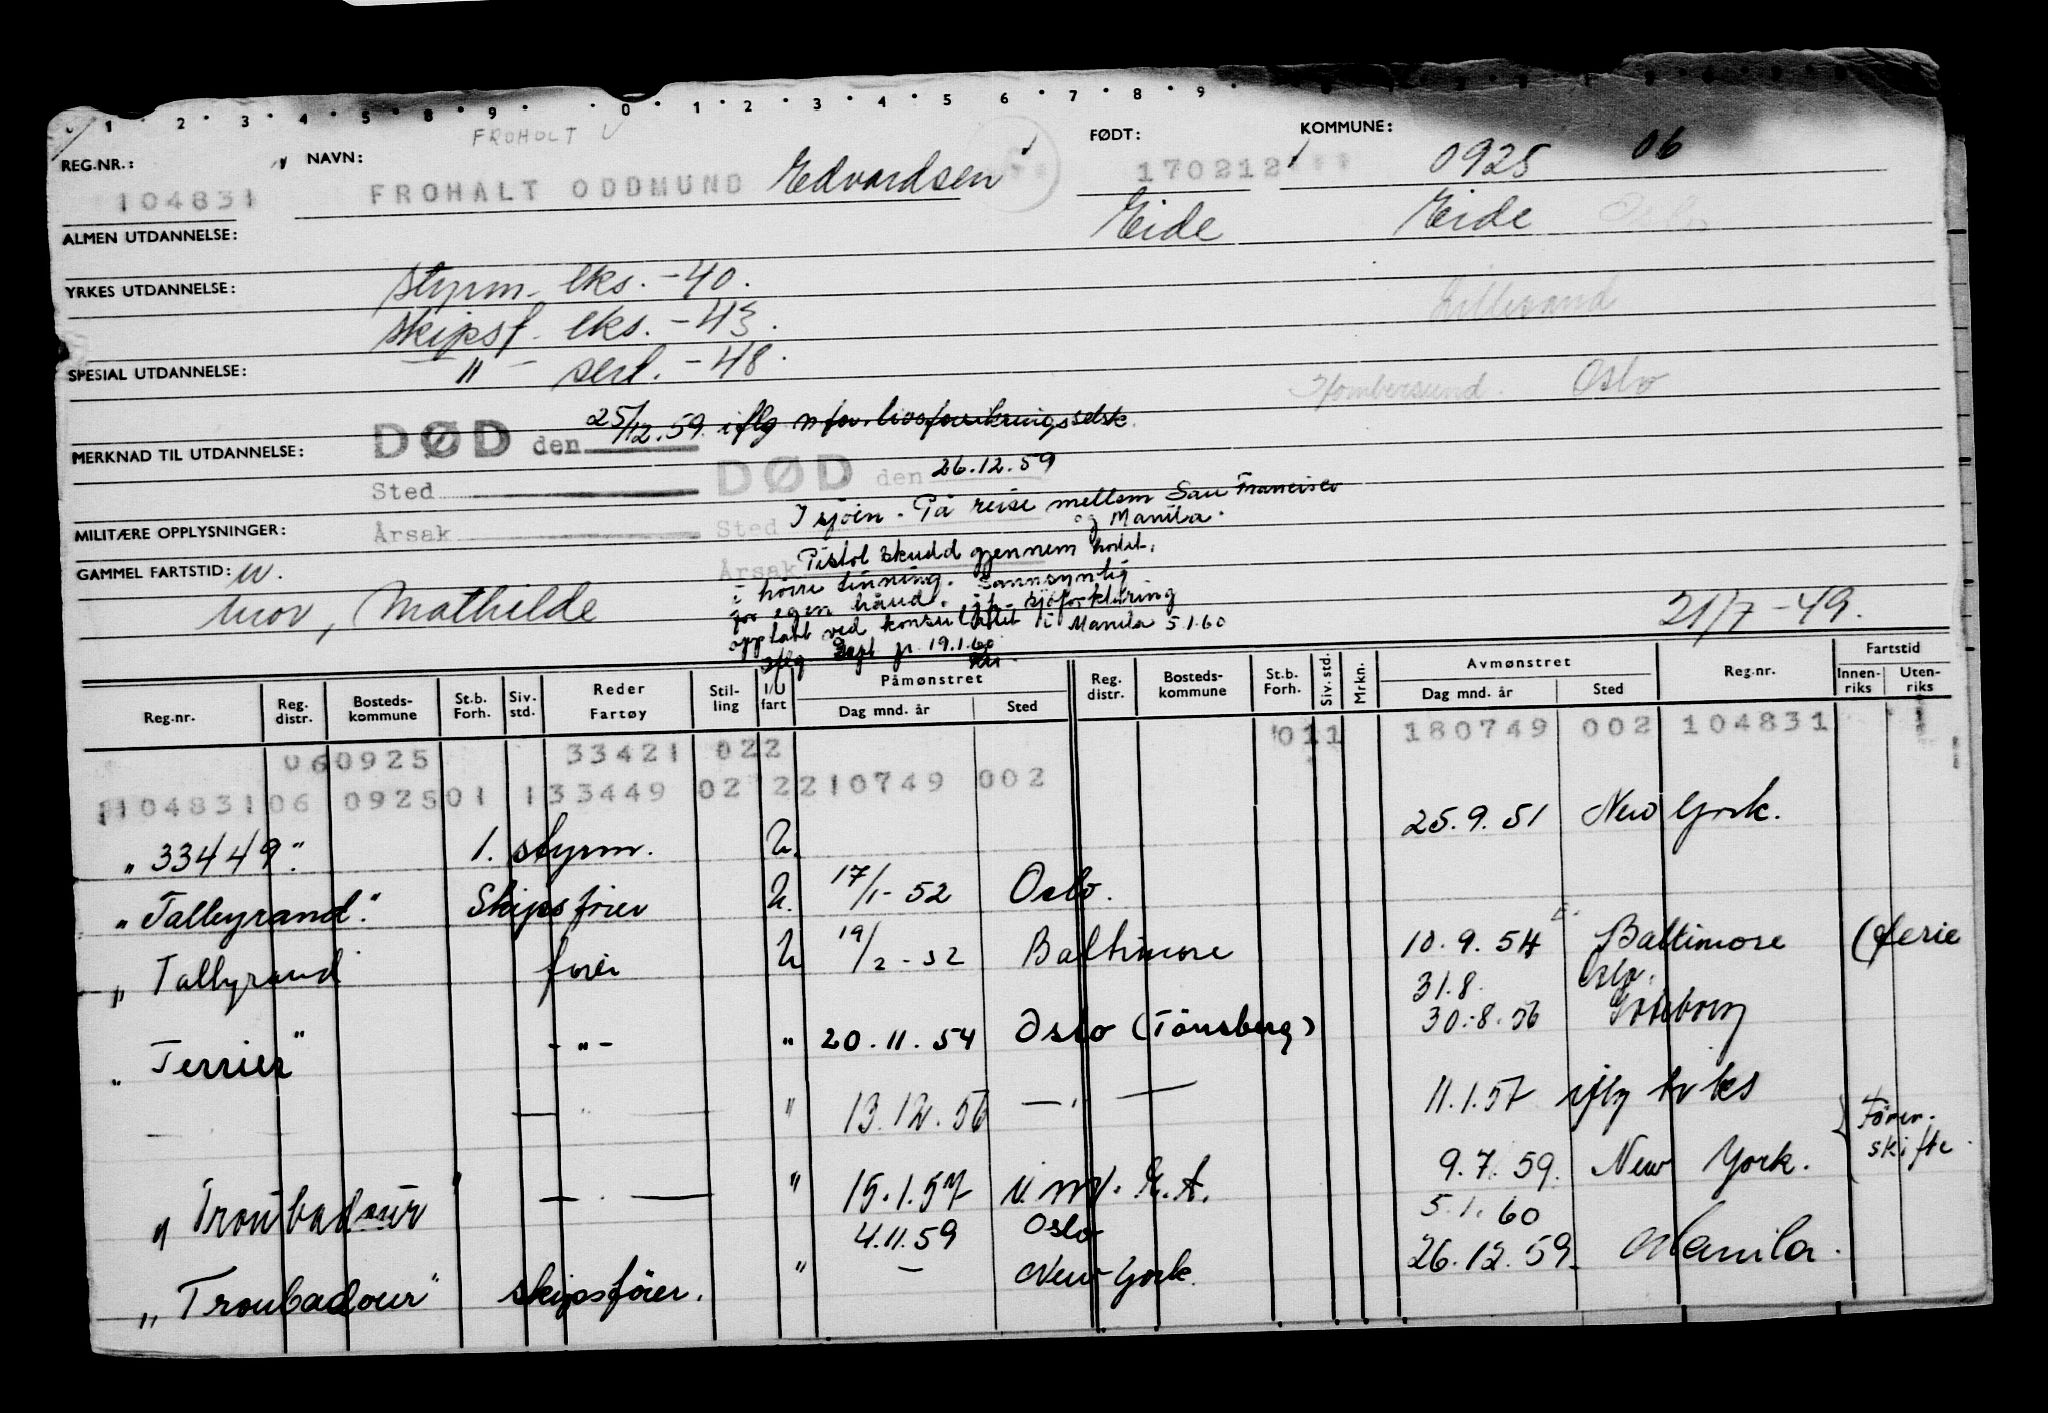 1 2 3 4 5 8 9 0 1 2 3 4 5 6 7 8 9
FROHOLT
REG.NR.: NAVN: FØDT: KOMMUNE:
104831 FROHALT ODDMUND Edvardsen 170212 0925 06
ALMEN UTDANNELSE: Eide Eide Oslo
YRKES UTDANNELSE: styrm. eks. -40.
skipsf. eks. -43. Lillesand
SPESIAL UTDANNELSE: " - sert. -48.
Hombersund. Oslo
DØD den 25/12.59. iflg livsforsikringsselsk.
MERKNAD TIL UTDANNELSE:
DØD den 26.12.59
Sted
Sted I sjøen. På reise mellem San Francisco
og Manila.
MILITÆRE OPPLYSNINGER: Årsak
Årsak Pistol skudd gjennem hodet,
GAMMEL FARTSTID: u.
i høire tinning. Sannsynlig
for egen hånd. sjøforklaring
mor, Mathilde
opptatt ved konsulatet i Manila 5.1.60
iflg Rapt. pr. 19.1.60
21/7-49.
Reg.nr. Reg. distr. Bosteds- kommune St.b. Forh. Siv. std. Reder Fartøy Stil- ling I/U fart Påmønstret Dag mnd. år Sted Reg. distr. Bosteds- kommune St.b. Forh. Siv. std. Mrkn. Avmønstret Dag mnd. år Sted Reg.nr. Fartstid Innen- riks Uten- riks
060925 33421 022 011 180749 002 104831
10483106 092501 133449 02 2210749 002
"33449". 1. styrm. U. 25.9.51 New York.
"Talleyrand". Skipsfører U. 17/1-52 Oslo.
" Tallyrand fører U 19/2-52 Baltimore 10.9.54 Baltimore (ferie
31.8. Oslo.
" Terrier" -"- " 20.11.54 Oslo (Tønsberg) 30.8.56 Göteborg
— " — " 13.12.56 — " — 11.1.57 iflg
" Troubadour " — . — " 15.1.57 9.7.59. New York. } Fører-
skifte.
4.11.59 Oslo 5.1.60
" Troubadour" skipsfører. " — New York. 26.12.59. Manila.